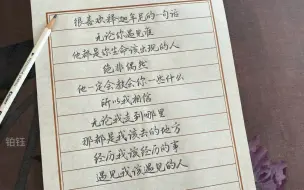 很喜欢释迦牟尼的一句话
无论你遇见谁
他都是你生命该出现的人
绝非偶然
他一定会教会你一些什么
所以我相信
无论我走到哪里
那都是我该去的地方
经历我该经历的事
遇见我该遇见的人
铂钰